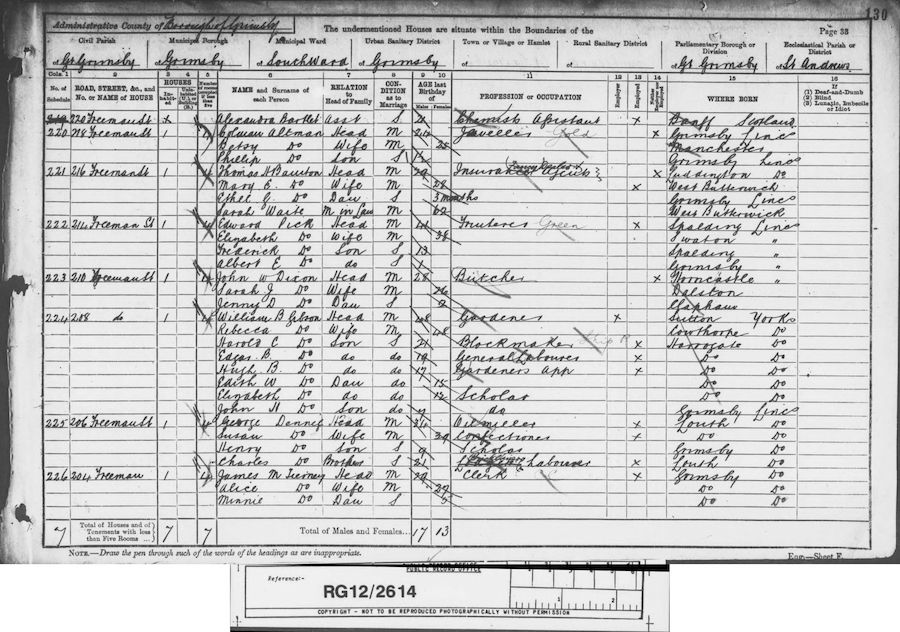 130
Administrative County of Borough of Grimsby
The undermentioned Houses are situate within the Boundaries of the
Page 38
Civil Parish
Municipal Borough
Municipal Ward
Urban Sanitary District
Town or Village or Hamlet
Rural Sanitary District
Parliamentary Borough or Division
Ecclesiastical Parish or District
of Gt Grimsby
of Grimsby
of South Ward
of Grimsby
of
of
of Gt Grimsby
of St Andrew
Cols. 1 2 3 4 5 6 7 8 9 10 11 12 13 14 15 16
No. of Schedule
ROAD, STREET, &c., and No. or NAME of HOUSE
HOUSES
NAME and Surname of each Person
RELATION to Head of Family
CONDITION as to Marriage
AGE last Birthday of
Males Females
PROFESSION or OCCUPATION
Employer
Employed
WHERE BORN
(1) Deaf-and-Dumb
(2) Blind
(3) Lunatic, Imbecile or Idiot
220 Freeman St Alexandra Bartlet Asst S Chemists Assistant x Banff Scotland
220 218 Freeman St 1 Altman Head M Gold x Grimsby Lincs
Betsy Do Wife M 25 Manchester
Phillip Do Son S Grimsby Lincs
221 216 Freeman St 1 4 Thomas H Head M 29 Insurance Agent x Luddington Do
Mary E. Do Wife M 28 x West Butterwick
Ethel G. Do Dau S 3 months Grimsby Lincs
Sarah Waite M in Law M 62 West Butterwick
222 214 Freeman St 1 4 Edward Pick Head M 41 Fruiterer Green x Spalding Lincs
Elizabeth Do Wife M 38 Swaton "
Frederick Do Son S 13 Spalding "
Albert E. Do do S 1 Grimsby "
223 210 Freeman St 1 4 John W Dixon Head M 28 Butcher x Horncastle "
Sarah J Do Wife M 26 Dalston
Jenny D Do Dau S 2 Clapham
224 208 do 1 4 William B Gibson Head M 48 Gardener x Sutton Yorks
Rebecca Do Wife M 48 Cowthorpe Do
Harold C Do Son S 21 Blockmaker Ship x Harrogate Do
Edgar B. Do do do 19 General Labourer x Do Do
Hugh B. Do do do 17 Gardeners App x Do Do
Edith W Do Dau do 15 Do Do
Elizabeth Do do do 12 Scholar Do Do
John H Do Son do do Grimsby Lincs
225 206 Freeman St 1 4 George Dennis Head M 34 Oil miller x Louth Do
Susan Do Wife M 29 Confectioner x Do Do
Henry Do Son S 9 Scholar Grimsby Do
Charles Do Brother S 21 Labourer x Louth Do
226 204 Freeman 1 4 James M Head M 29 Clerk x Grimsby Do
Alice Do Wife M 29 Do Do
Minnie Do Dau S 5 Do Do
7 Total of Houses and of Tenements with less than Five Rooms ... 7 7 Total of Males and Females... 17 13
NOTE.—Draw the pen through such of the words of the headings as are inappropriate.
Eng.—Sheet F.
PUBLIC RECORD OFFICE
Reference:-
RG12/2614
1 2
COPYRIGHT - NOT TO BE REPRODUCED PHOTOGRAPHICALLY WITHOUT PERMISSION